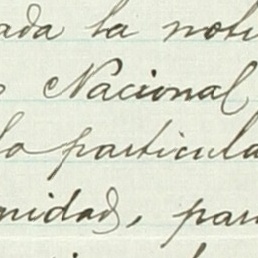 ada la noti
Nacional
lo particula
nidad, par